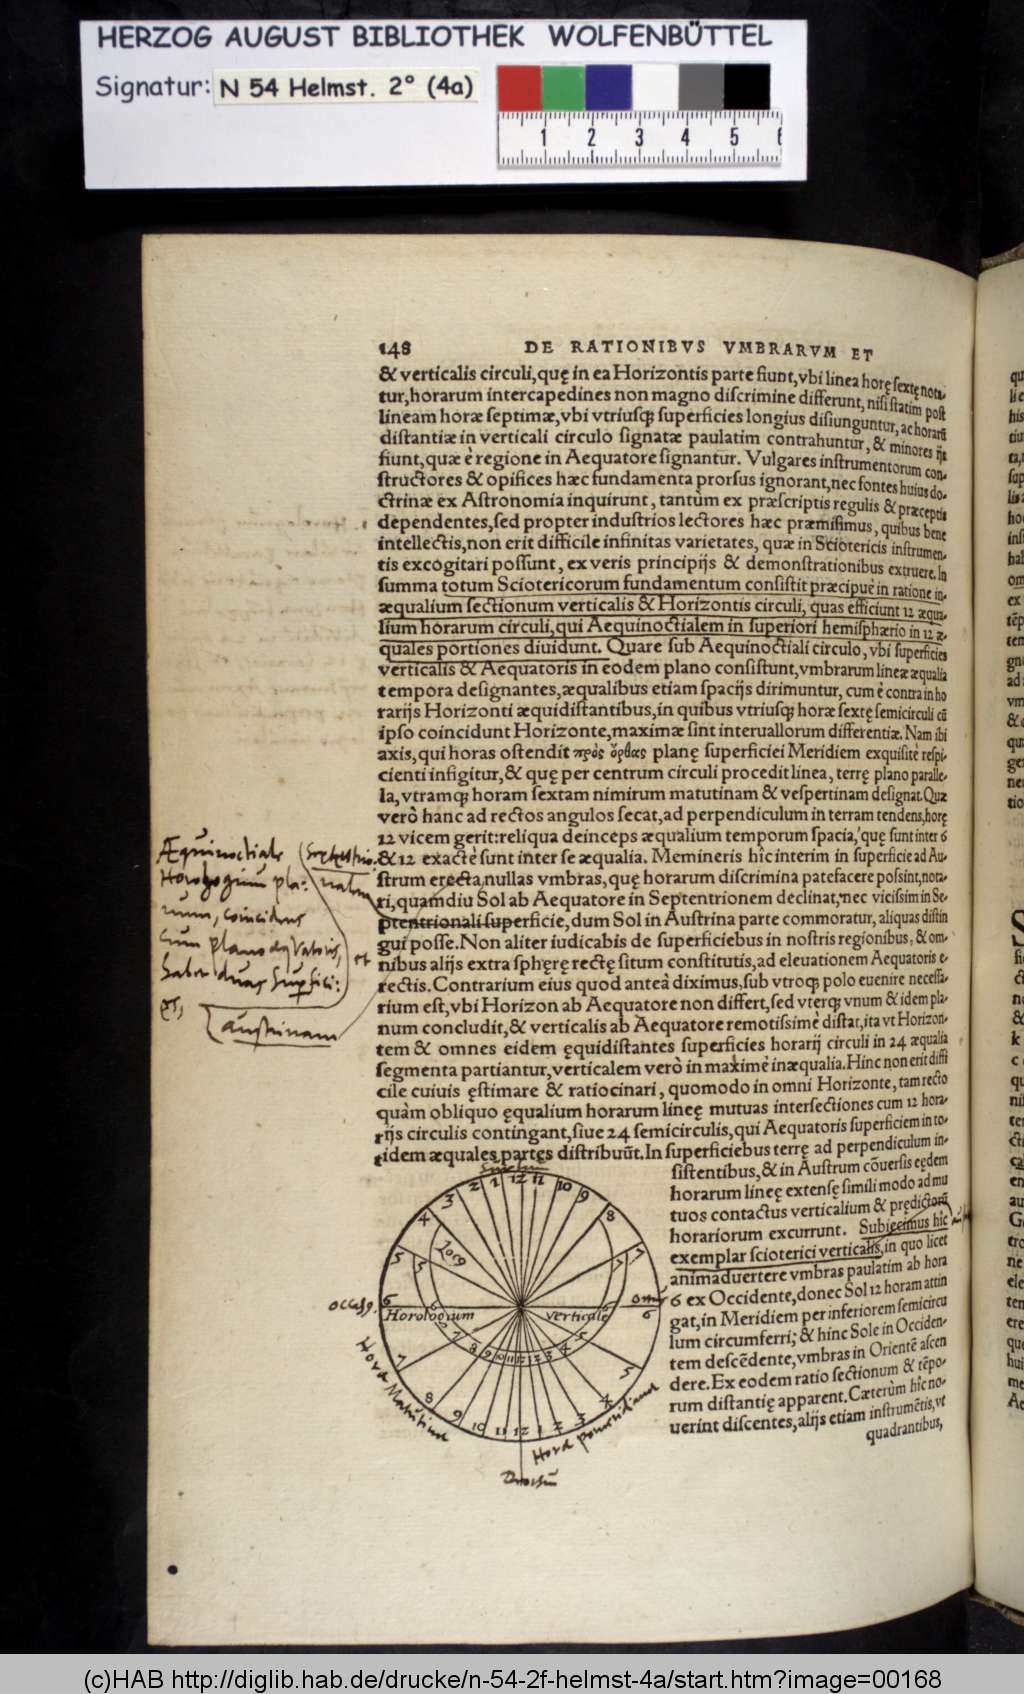 HERZOG AUGUST BIBLIOTHEK WOLFENBÜTTEL
Signatur: N 54 Helmst. 2° (4a)
1 2 3 4 5 6
148 DE RATIONIBVS VMBRARVM ET
& verticalis circuli, quę in ea Horizontis parte fiunt, vbi linea horę sextę nota-
tur, horarum intercapedines non magno discrimine differunt, nisi statim post
lineam horæ septimæ, vbi vtriusq; superficies longius disiunguntur, ac horarũ
distantiæ in verticali circulo signatæ paulatim contrahuntur, & minores ijs
fiunt, quæ è regione in Aequatore signantur. Vulgares instrumentorum con-
structores & opifices hæc fundamenta prorsus ignorant, nec fontes huius do-
ctrinæ ex Astronomia inquirunt, tantùm ex præscriptis regulis & præceptis
dependentes, sed propter industrios lectores hæc præmisimus, quibus bene
intellectis, non erit difficile infinitas varietates, quæ in Sciotericis instrumen-
tis excogitari possunt, ex veris principijs & demonstrationibus extruere. In
summa totum Sciotericorum fundamentum consistit præcipuè in ratione in-
æqualium sectionum verticalis & Horizontis circuli, quas efficiunt 12 æqua-
lium horarum circuli, qui Aequinoctialem in superiori hemisphærio in 12 æ-
quales portiones diuidunt. Quare sub Aequinoctiali circulo, vbi superficies
verticalis & Aequatoris in eodem plano consistunt, vmbrarum lineæ æqualia
tempora designantes, æqualibus etiam spacijs dirimuntur, cum è contra in ho
rarijs Horizonti æquidistantibus, in quibus vtriusq; horæ sextę semicirculi cũ
ipso coincidunt Horizonte, maximæ sint interuallorum differentiæ. Nam ibi
axis, qui horas ostendit πρὸς ὄρθας planę superficiei Meridiem exquisitè respi-
cienti infigitur, & quę per centrum circuli procedit linea, terrę plano paralle-
la, vtramq; horam sextam nimirum matutinam & vespertinam designat. Quæ
verò hanc ad rectos angulos secat, ad perpendiculum in terram tendens, horę
12 vicem gerit: reliqua deinceps æqualium temporum spacia, quę sunt inter 6
& 12 exactè sunt inter se æqualia. Memineris hîc interim in superficie ad Au-
strum erecta, nullas vmbras, quę horarum discrimina patefacere possint, nota-
ri, quamdiu Sol ab Aequatore in Septentrionem declinat, nec vicissim in Se-
ptentrionali superficie, dum Sol in Austrina parte commoratur, aliquas distin
gui posse. Non aliter iudicabis de superficiebus in nostris regionibus, & om-
nibus alijs extra sphęrę rectę situm constitutis, ad eleuationem Aequatoris e-
rectis. Contrarium eius quod anteà diximus, sub vtroq; polo euenire necessa-
rium est, vbi Horizon ab Aequatore non differt, sed vterq; vnum & idem pla-
num concludit, & verticalis ab Aequatore remotissimè distat, ita vt Horizon-
tem & omnes eidem ęquidistantes superficies horarij circuli in 24 æqualia
segmenta partiantur, verticalem verò in maximè inæqualia. Hinc non erit diffi
cile cuiuis ęstimare & ratiocinari, quomodo in omni Horizonte, tam recto
quàm obliquo ęqualium horarum lineę mutuas intersectiones cum 12 hora-
rijs circulis contingant, siue 24 semicirculis, qui Aequatoris superficiem in to-
tidem æquales partes distribuũt. In superficiebus terrę ad perpendiculum in-
sistentibus, & in Austrum cõuersis eędem
horarum lineę extensę simili modo ad mu
tuos contactus verticalium & prędictorũ
horariorum excurrunt. Subiecimus hîc
exemplar scioterici verticalis, in quo licet
animaduertere vmbras paulatim ab hora
6 ex Occidente, donec Sol 12 horam attin
gat, in Meridiem per inferiorem semicircu
lum circumferri; & hinc Sole in Occiden-
tem descẽdente, vmbras in Orientẽ ascen
dere. Ex eodem ratio sectionum & tẽpo-
rum distantię apparent. Cæterùm hîc no-
uerint discentes, alijs etiam instrumẽtis, vt
quadrantibus,
Æquinoctiale
Horologium pla:
num, coincidens
cum plano æquatoris,
habet duas superfici:
es,
et
austrinam
3 2 1 12 11 10 9
4 8
5 5 7 7
Locq
occasq. 6 6
Horologium verticale
7 8 9 10 11 12 1 2 3 4 5
7 5
8 9 10 11 12 1 2 3 4
Hora Matutinæ
Hora pomeridianæ
(c)HAB http://diglib.hab.de/drucke/n-54-2f-helmst-4a/start.htm?image=00168